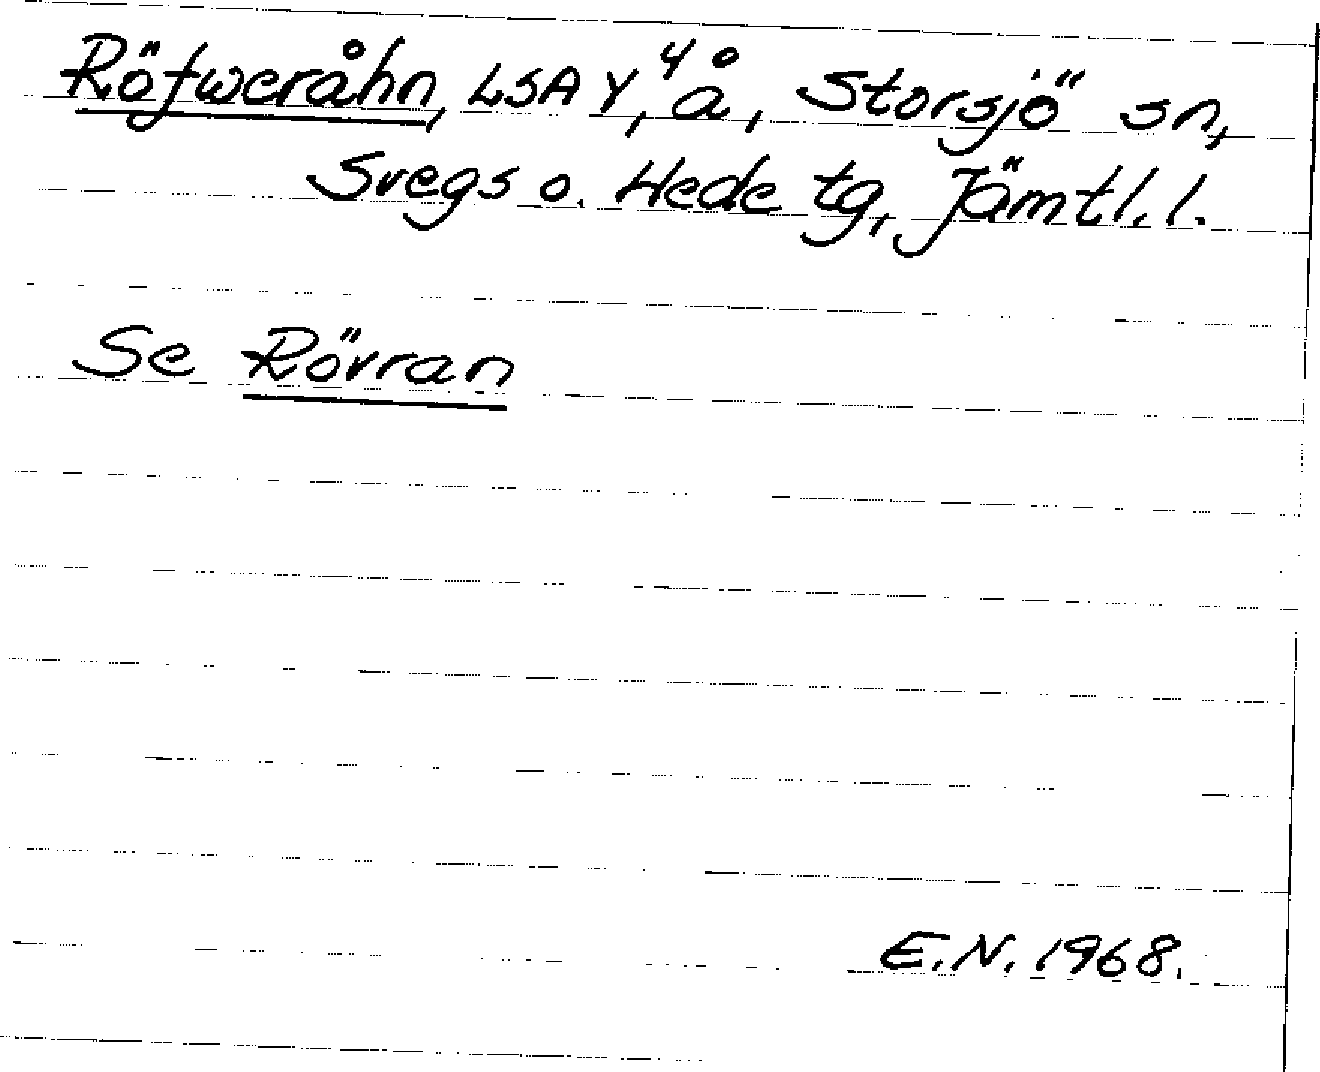 Röfweråhn, LSA Y4, å, Storsjö sn,
Svegs o. Hede tg, Jämtl. l.
Se Rövran
E.N. 1968.